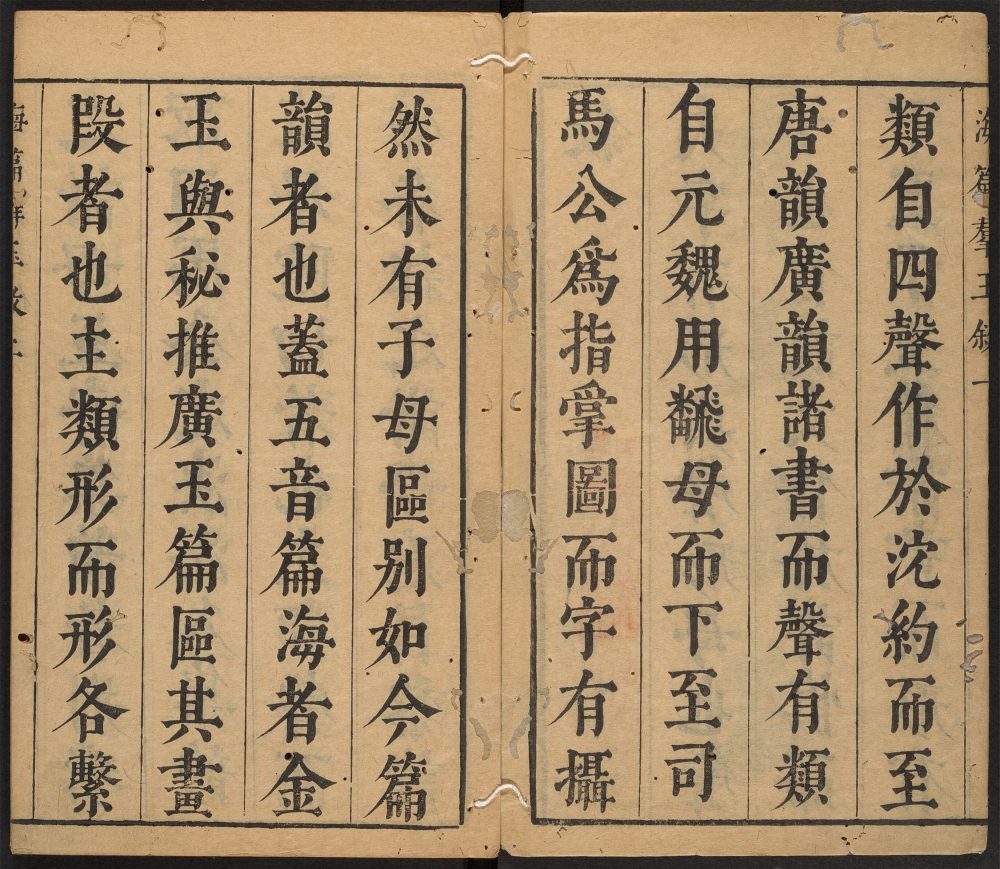 海篇羣玉敘 一
類自四聲作於沈約而至
唐韻廣韻諸書而聲有類
自元魏用飜母而下至司
馬公爲指掌圖而字有攝
然未有子母區別如今篇
韻者也蓋五音篇海者金
玉與秘推廣玉篇區其畫
段者也主類形而形各繫
海篇